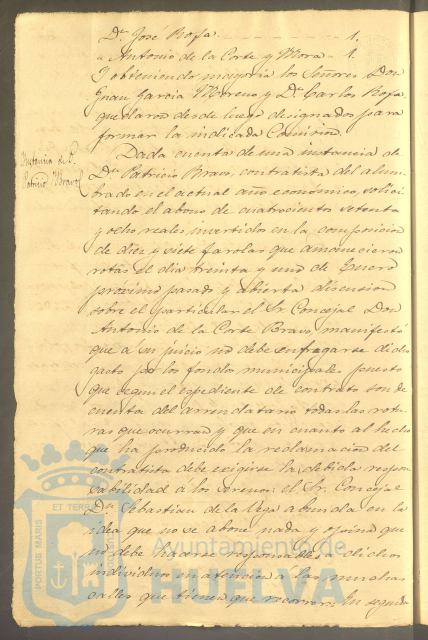 Dn. José Rofa - - - - - 1.
" Antonio de la Corte y Mora - 1.
Y obteniendo mayoria los Señores Don
Juan Garcia Moreno y Dn. Carlos Rofa
quedaron desde luego designados para
formar la indicada Comision.
Instancia de D.
Patricio Bravo
Dada cuenta de una instancia de
Dn. Patricio Bravo, contratista del alum-
brado en el actual año economico, solici-
tando el abono de cuatrocientos setenta
y ocho reales invertidos en la composicion
de diez y siete farolas que amanecieron
rotas el dia treinta y uno de Enero
proximo pasado y abierta discusion
sobre el particular el Sr. Concejal Don
Antonio de la Corte Bravo, manifestó
que á su juicio no debe sufragarse dicho
gasto por los fondos municipales puesto
que segun el espediente de contrato son de
cuenta del arrendatario todas las rotu-
ras que ocurran y que en cuanto al hecho
que ha producido la reclamacion del
contratista debe exigirse la debida respon-
sabilidad á los serenos: el Sr. Concejal
Dn. Sebastian de la Vega abunda en la
idea que no se abone nada y opina que
no debe hacerse responsables á dichos
individuos en atencion a las muchas
calles que tienen que recorrer. En seguida
PORTUS MARIS ET TERRAE
Ayuntamiento de
HUELVA